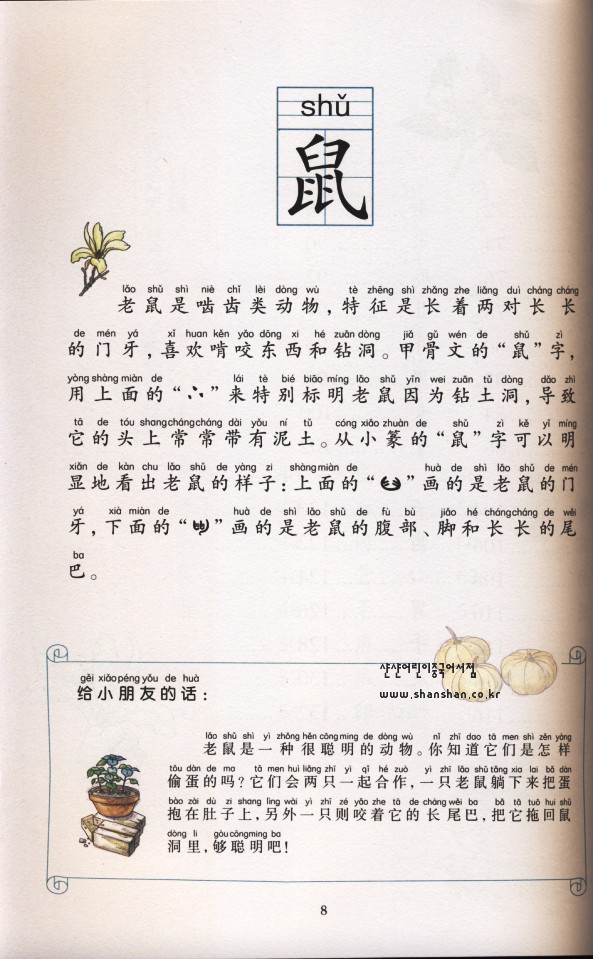 shǔ
鼠
lǎo shǔ shì niè chǐ lèi dòng wù tè zhēng shì zhǎng zhe liǎng duì cháng cháng
老鼠是啮齿类动物，特征是长着两对长长
de mén yá xǐ huan kěn yǎo dōng xi hé zuān dòng jiǎ gǔ wén de shǔ zì
的门牙，喜欢啃咬东西和钻洞。甲骨文的“鼠”字，
yòng shàng miàn de lái tè bié biāo míng lǎo shǔ yīn wei zuān tǔ dòng dǎo zhì
用上面的“ ”来特别标明老鼠因为钻土洞，导致
tā de tóu shang cháng cháng dài yǒu ní tǔ cóng xiǎo zhuàn de shǔ zì kě yǐ míng
它的头上常常带有泥土。从小篆的“鼠”字可以明
xiǎn de kàn chu lǎo shǔ de yàng zi shàng miàn de huà de shì lǎo shǔ de mén
显地看出老鼠的样子：上面的“ ”画的是老鼠的门
yá xià miàn de huà de shì lǎo shǔ de fù bù jiǎo hé cháng cháng de wěi
牙，下面的“ ”画的是老鼠的腹部、脚和长长的尾
ba
巴。
샨샨어린이중국어서점
www.shanshan.co.kr
gěi xiǎo péng yǒu de huà
给小朋友的话：
lǎo shǔ shì yì zhǒng hěn cōng ming de dòng wù nǐ zhī dao tā men shì zěn yàng
老鼠是一种很聪明的动物。你知道它们是怎样
tōu dàn de ma tā men huì liǎng zhī yì qǐ hé zuò yì zhī lǎo shǔ tǎng xia lai bǎ dàn
偷蛋的吗？它们会两只一起合作，一只老鼠躺下来把蛋
bào zài dù zi shang lìng wài yì zhī zé yǎo zhe tā de cháng wěi ba bǎ tā tuō huí shǔ
抱在肚子上，另外一只则咬着它的长尾巴，把它拖回鼠
dòng li gòu cōng ming ba
洞里，够聪明吧！
8